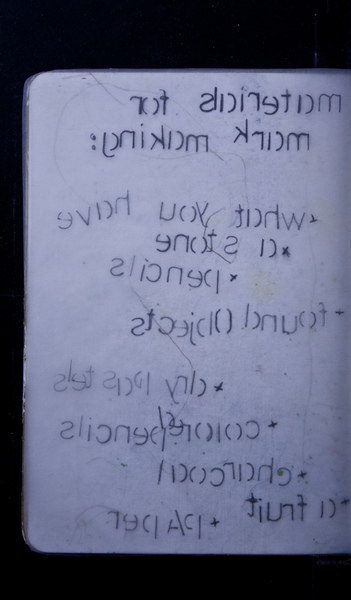 materials for
mark making:
*what you have
*a stone
*pencils
*found Objects
*dry pastels
*colorepencils
*charcoal
*a fruit
*pAper